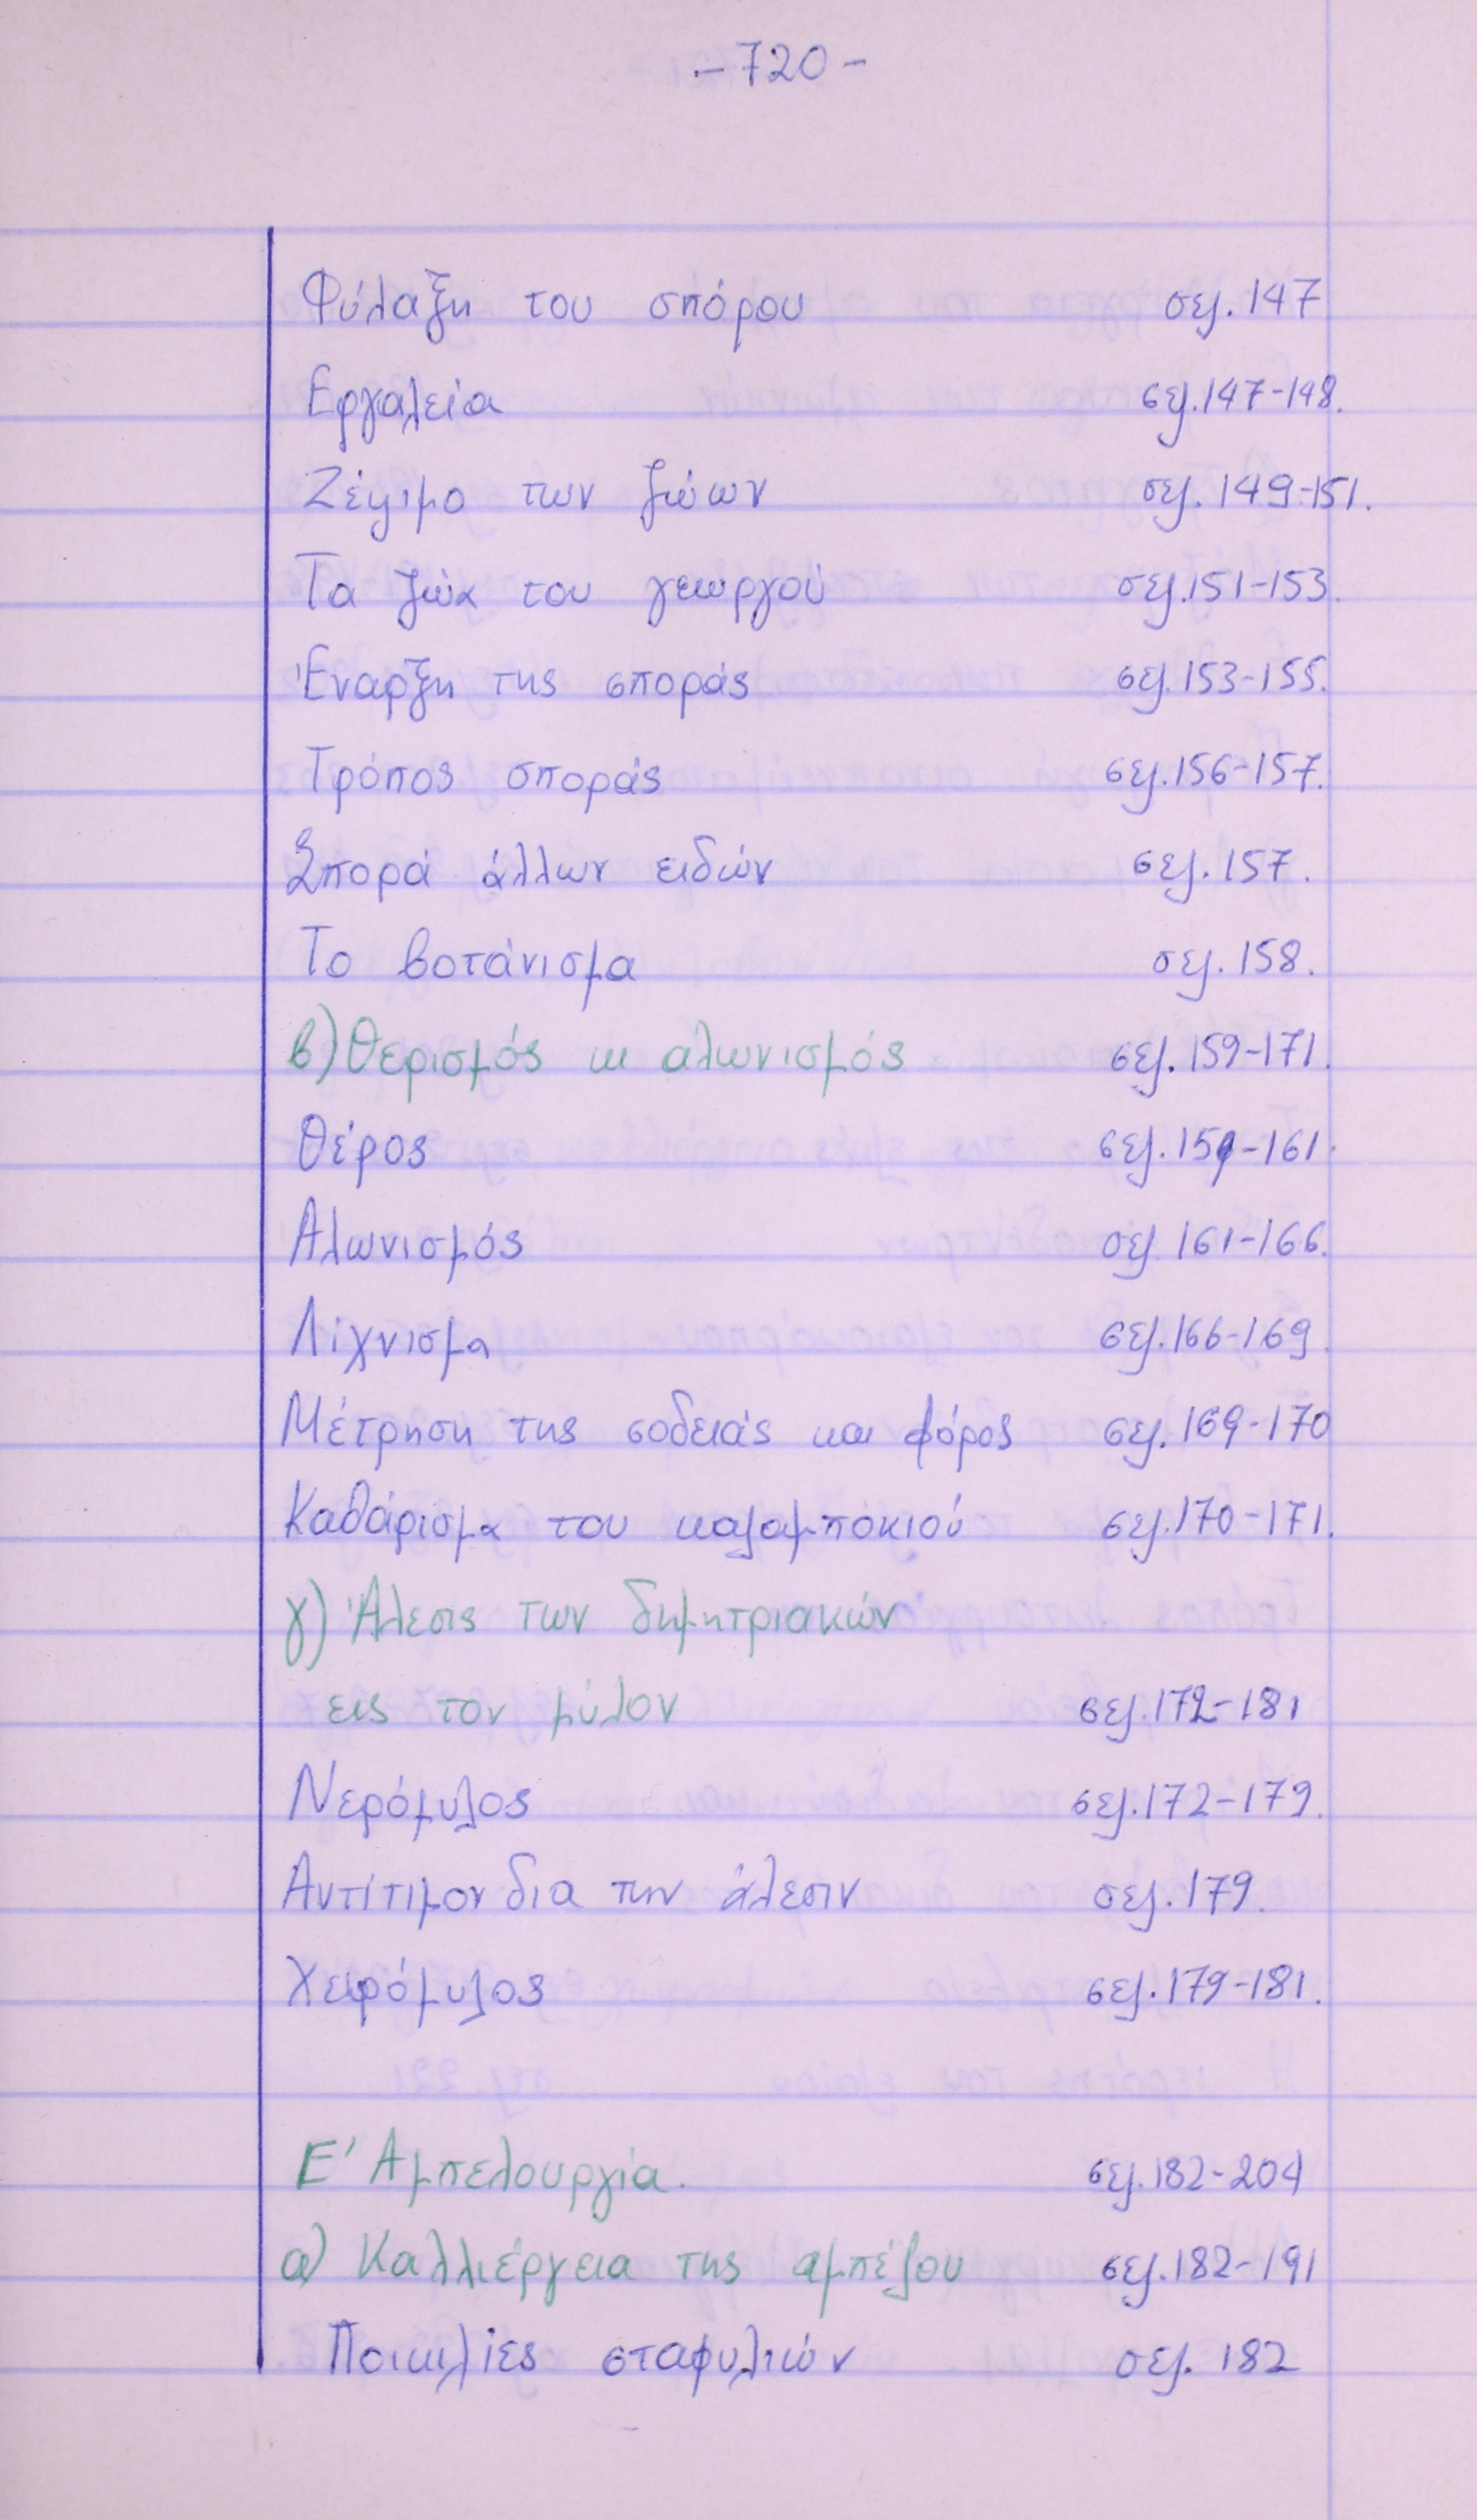 -720-
Φύλαξη του σπόρου σελ. 147
Εργαλεία σελ. 147-148.
Ζέψιμο των ζώων σελ. 149-151.
Τα ζώα του γεωργού σελ. 151-153.
Έναρξη της σποράς σελ. 153-155.
Τρόπος σποράς σελ. 156-157.
Σπορά άλλων ειδών σελ. 157.
Το βοτάνισμα σελ. 158.
β) Θερισμός κι αλωνισμός σελ. 159-171.
Θέρος σελ. 159-161.
Αλωνισμός σελ. 161-166.
Λίχνισμα σελ. 166-169.
Μέτρηση της σοδειάς και φόρος σελ. 169-170
Καθάρισμα του καλαμποκιού σελ. 170-171.
γ) Άλεσις των δημητριακών
εις τον μύλον σελ. 172-181
Νερόμυλος σελ. 172-179.
Αντίτιμον δια την άλεσιν σελ. 179.
Χειρόμυλος σελ. 179-181.
Ε' Αμπελουργία. σελ. 182-204
α) Καλλιέργεια της αμπέλου σελ. 182-191
Ποικιλίες σταφυλιών σελ. 182